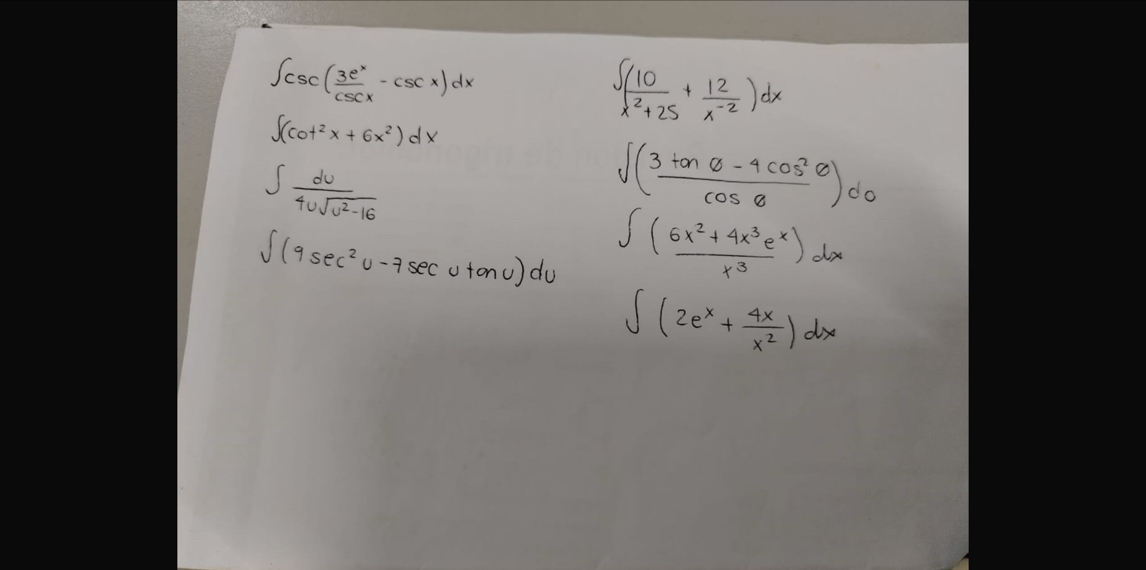 ∫csc(3eˣ/cscx - csc x)dx
∫(cot²x + 6x²)dx
∫ du/4u√u²-16
∫(9sec²u-7sec u tanu)du
∫(10/x²+25 + 12/x⁻²)dx
∫(3 tan Ø - 4 cos² Ø/cos Ø)do
∫(6x²+4x³eˣ/x³)dx
∫(2eˣ + 4x/x²)dx